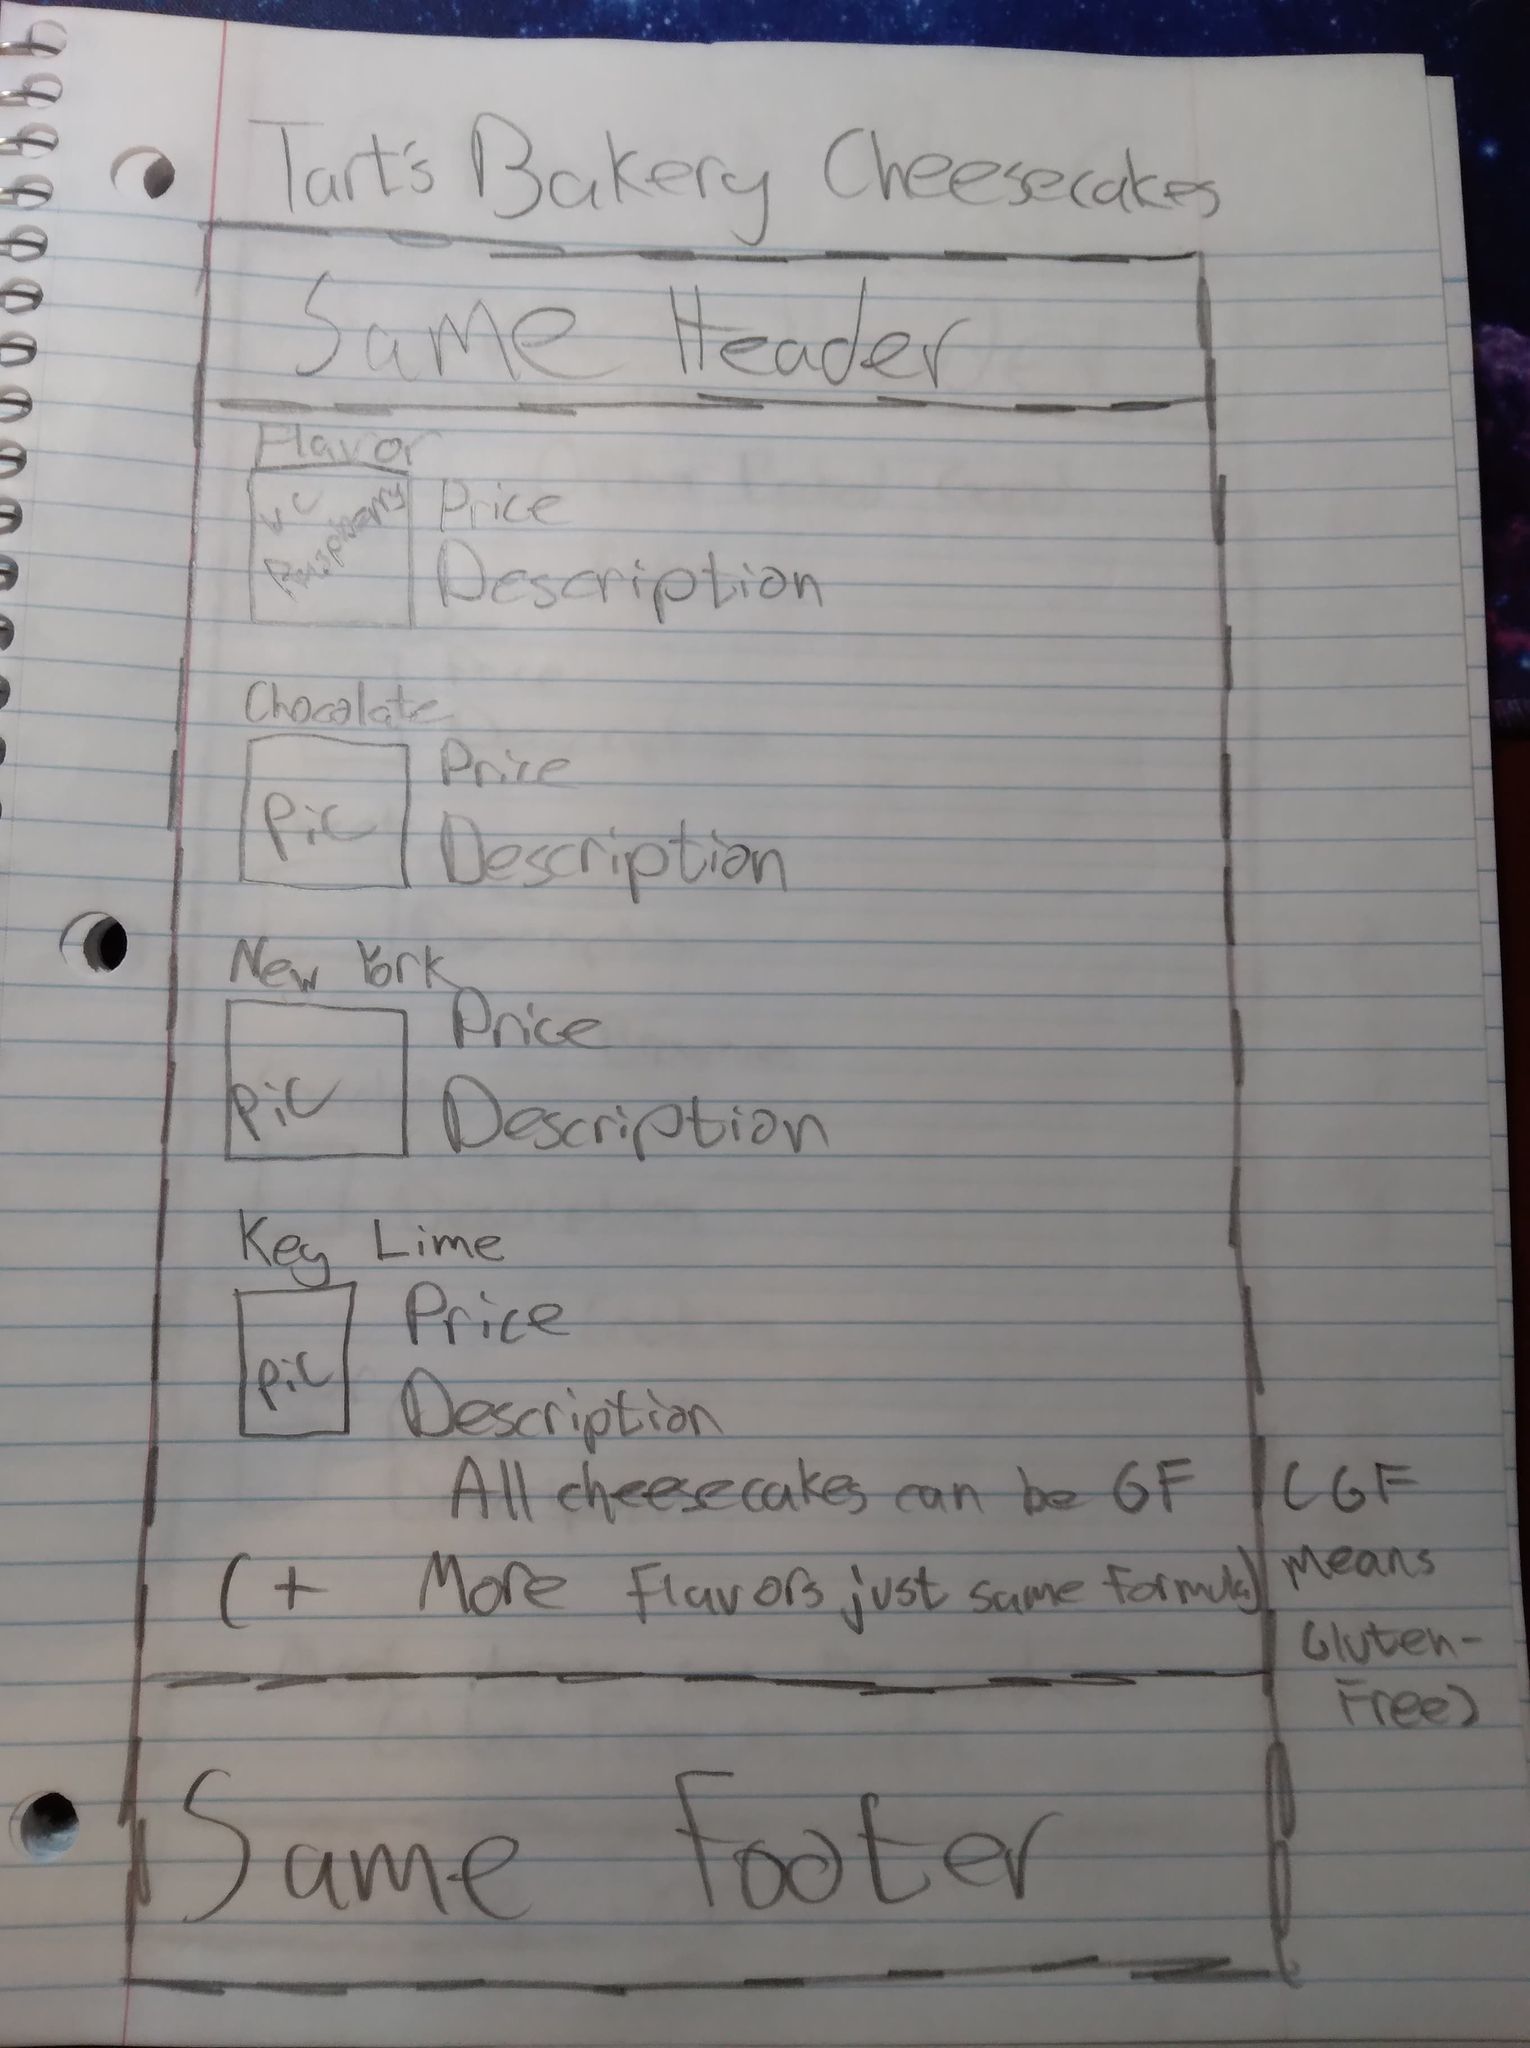 Tart's Bakery Cheesecakes
Same Header
Flavor
Raspberry
Price
Description
Chocolate
Pic
Price
Description
New York
Pic
Price
Description
Key Lime
Pic
Price
Description
All cheesecakes can be GF
(GF
means
Gluten-
Free)
(+ More Flavors just same formula)
Same Footer